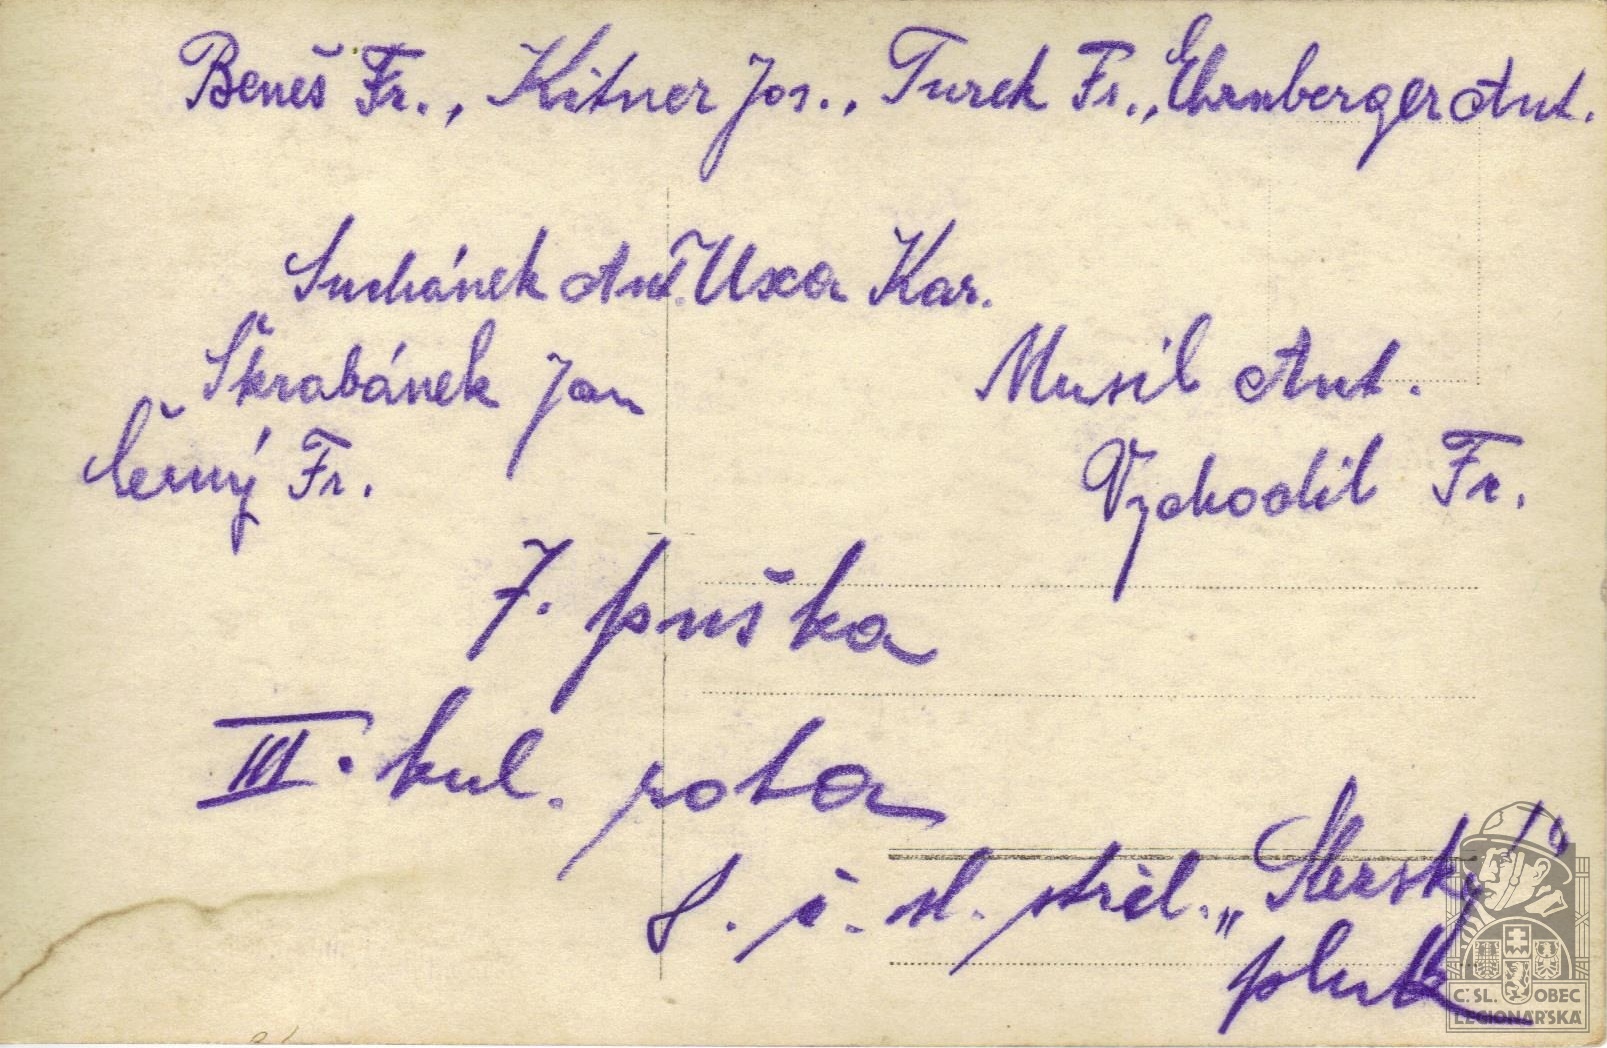 Beneš Fr., Kitner Jos., Turek Fr., Ehrnberger Ant.
Suchánek Ant. Uxa Kar.
Škrabánek Jan
Musil Ant.
Černý Fr.
Vzchodil Fr.
7. puška
III. kul. rota
8. č. sl. střel. „Slezský“
pluk
Č.SL. OBEC
LEGIONÁŘSKÁ